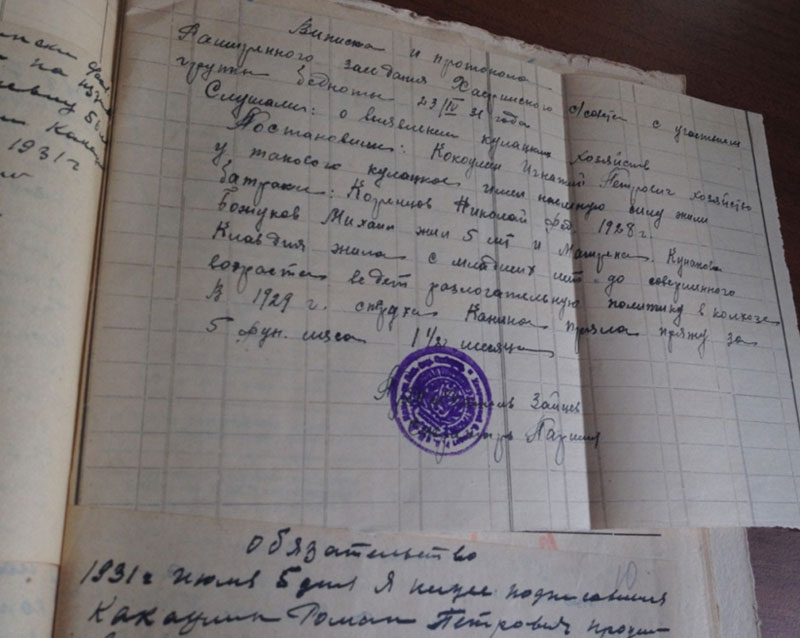 Виписка и протокола
Расширенного заседания Хаеринского с/совета с участием
группы бедноты 23/IV 31 года
Слушали: о виявлении кулацких хозяйств
Постановили: Кокоулин Игнатий Петрович хозяйство
у такового кулацкое имел наемную силу жили
батраки: Козренцов Николай 1928 г.
Божуков Михаил жил 5 лет и Матрена. Кунакова
Клавдия жила с младших лет до совершенного
возраста ведет разлогательную политику в колхозе
В 1929 г. старуха Канина пряла пряжу за
5 фун. мяса 1 1/2 месяца
Председатель Зайцев
Секретарь
обязательство
1931 г Июля 5 дня Я ниже подписавшия
Какаулин Роман Петрович
1931 г